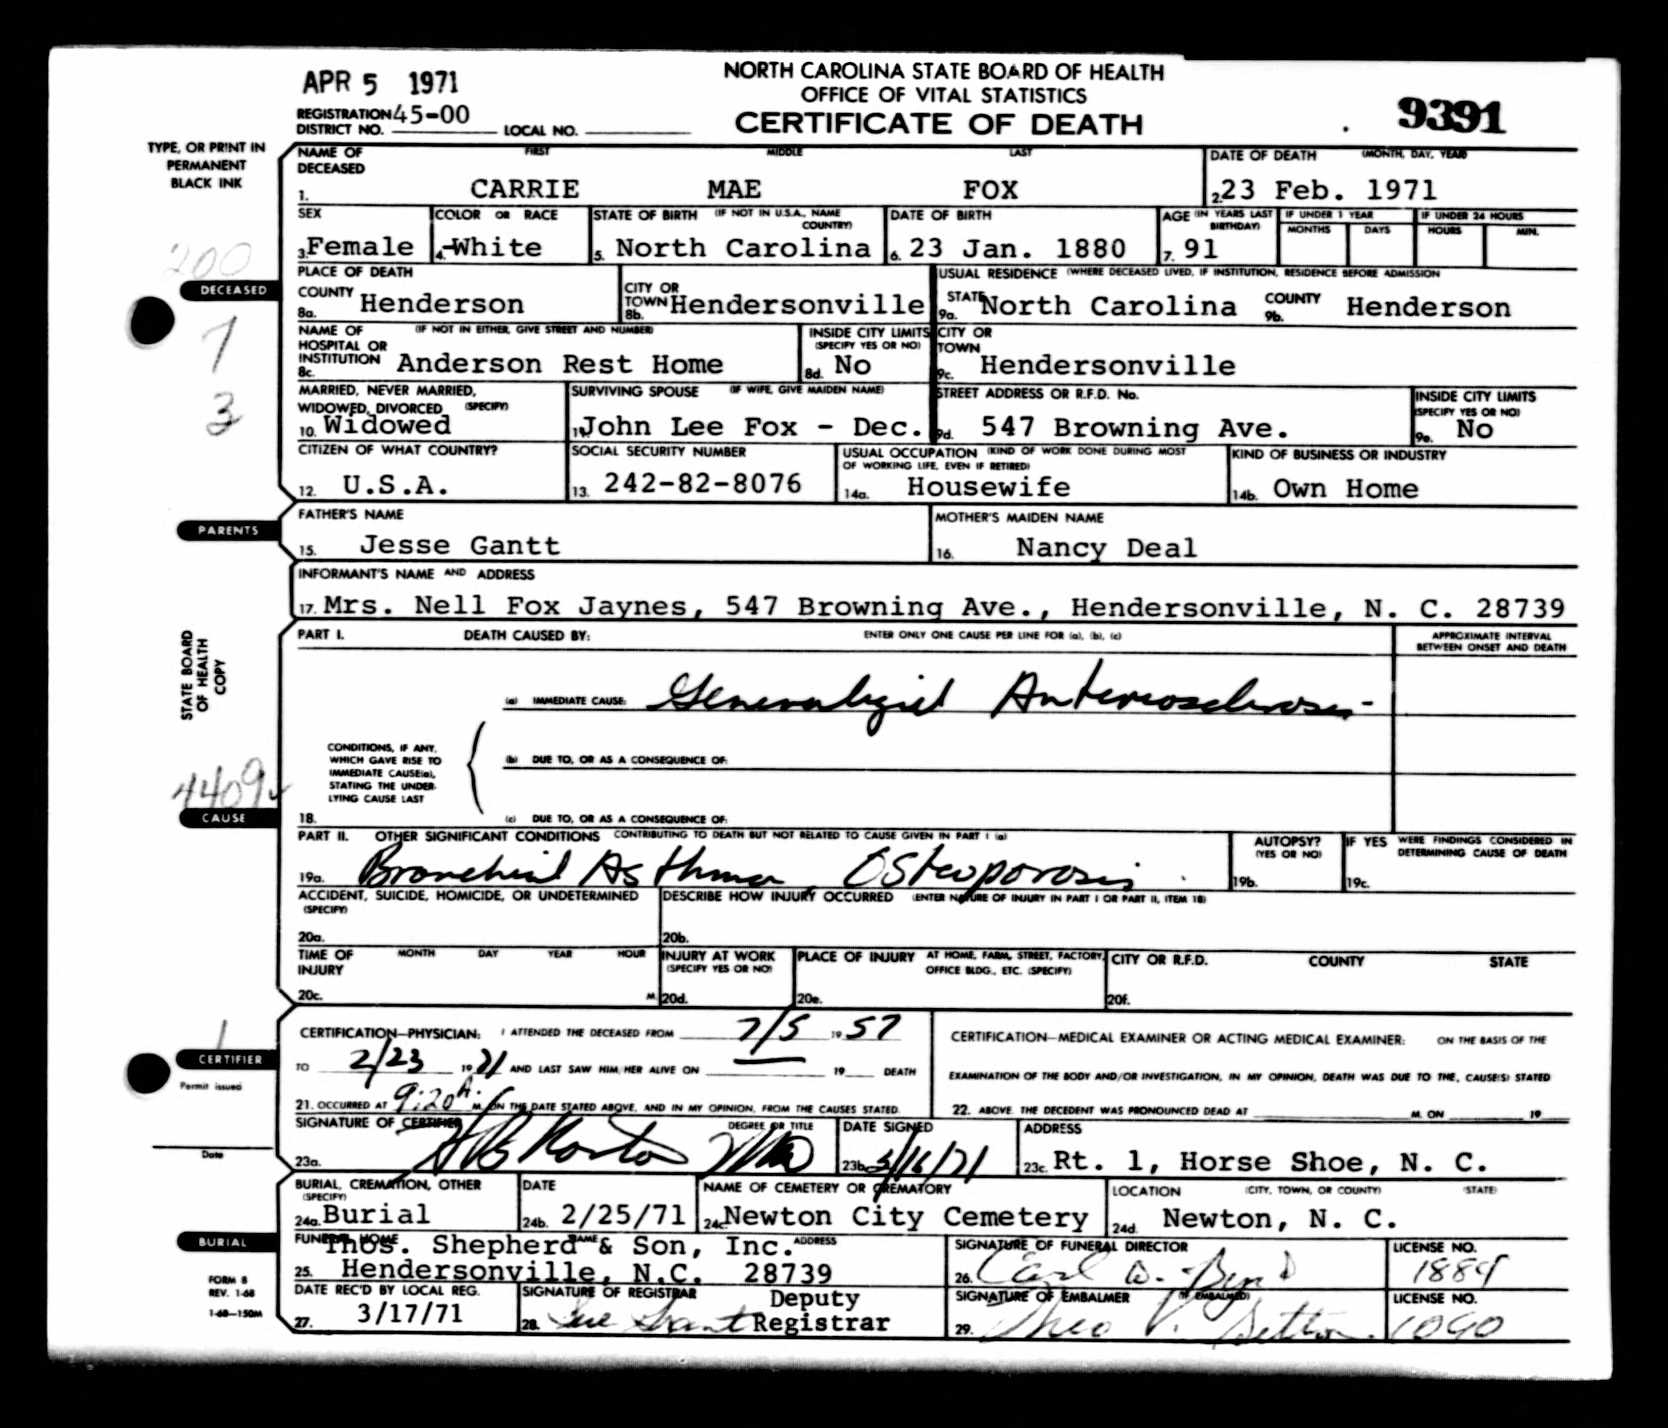 APR 5 1971
NORTH CAROLINA STATE BOARD OF HEALTH
OFFICE OF VITAL STATISTICS
CERTIFICATE OF DEATH
9391
REGISTRATION 45-00
DISTRICT NO. LOCAL NO.
TYPE, OR PRINT IN
PERMANENT
BLACK INK
NAME OF DECEASED FIRST MIDDLE LAST
1. CARRIE MAE FOX
DATE OF DEATH (MONTH, DAY, YEAR)
2. 23 Feb. 1971
SEX
3. Female
COLOR OR RACE
4. White
STATE OF BIRTH (IF NOT IN U.S.A., NAME COUNTRY)
5. North Carolina
DATE OF BIRTH
6. 23 Jan. 1880
AGE (IN YEARS LAST BIRTHDAY)
7. 91
IF UNDER 1 YEAR
MONTHS DAYS
IF UNDER 24 HOURS
HOURS MIN.
200
DECEASED
7
3
PLACE OF DEATH
COUNTY
8a. Henderson
CITY OR TOWN
8b. Hendersonville
USUAL RESIDENCE (WHERE DECEASED LIVED, IF INSTITUTION, RESIDENCE BEFORE ADMISSION
STATE
9a. North Carolina
COUNTY
9b. Henderson
NAME OF HOSPITAL OR INSTITUTION (IF NOT IN EITHER, GIVE STREET AND NUMBER)
8c. Anderson Rest Home
INSIDE CITY LIMITS (SPECIFY YES OR NO)
8d. No
CITY OR TOWN
9c. Hendersonville
MARRIED, NEVER MARRIED,
WIDOWED, DIVORCED (SPECIFY)
10. Widowed
SURVIVING SPOUSE (IF WIFE, GIVE MAIDEN NAME)
11. John Lee Fox - Dec.
STREET ADDRESS OR R.F.D. No.
9d. 547 Browning Ave.
INSIDE CITY LIMITS (SPECIFY YES OR NO)
9e. No
CITIZEN OF WHAT COUNTRY?
12. U.S.A.
SOCIAL SECURITY NUMBER
13. 242-82-8076
USUAL OCCUPATION (KIND OF WORK DONE DURING MOST
OF WORKING LIFE, EVEN IF RETIRED)
14a. Housewife
KIND OF BUSINESS OR INDUSTRY
14b. Own Home
PARENTS
FATHER'S NAME
15. Jesse Gantt
MOTHER'S MAIDEN NAME
16. Nancy Deal
INFORMANT'S NAME AND ADDRESS
17. Mrs. Nell Fox Jaynes, 547 Browning Ave., Hendersonville, N. C. 28739
STATE BOARD
OF HEALTH
COPY
PART I. DEATH CAUSED BY: ENTER ONLY ONE CAUSE PER LINE FOR (a), (b), (c)
APPROXIMATE INTERVAL
BETWEEN ONSET AND DEATH
(a) IMMEDIATE CAUSE: Generalized Arteriosclerosis
CONDITIONS, IF ANY,
WHICH GAVE RISE TO
IMMEDIATE CAUSE(a),
STATING THE UNDER-
LYING CAUSE LAST
(b) DUE TO, OR AS A CONSEQUENCE OF:
4409
CAUSE
18. (c) DUE TO, OR AS A CONSEQUENCE OF:
PART II. OTHER SIGNIFICANT CONDITIONS CONTRIBUTING TO DEATH BUT NOT RELATED TO CAUSE GIVEN IN PART I (a)
19a. Bronchial Asthma Osteoporosis
AUTOPSY? (YES OR NO)
19b.
IF YES WERE FINDINGS CONSIDERED IN
DETERMINING CAUSE OF DEATH
19c.
ACCIDENT, SUICIDE, HOMICIDE, OR UNDETERMINED
(SPECIFY)
20a.
DESCRIBE HOW INJURY OCCURRED (ENTER NATURE OF INJURY IN PART I OR PART II, ITEM 18)
20b.
TIME OF INJURY MONTH DAY YEAR HOUR
20c. M.
INJURY AT WORK (SPECIFY YES OR NO)
20d.
PLACE OF INJURY AT HOME, FARM, STREET, FACTORY,
OFFICE BLDG., ETC. (SPECIFY)
20e.
CITY OR R.F.D. COUNTY STATE
20f.
1
CERTIFIER
Permit issued
Date
CERTIFICATION—PHYSICIAN: I ATTENDED THE DECEASED FROM 7/5 19 57
TO 2/23 19 71 AND LAST SAW HIM/HER ALIVE ON 19 DEATH
21. OCCURRED AT 9:20 A. M. ON THE DATE STATED ABOVE, AND IN MY OPINION, FROM THE CAUSES STATED.
CERTIFICATION—MEDICAL EXAMINER OR ACTING MEDICAL EXAMINER: ON THE BASIS OF THE
EXAMINATION OF THE BODY AND/OR INVESTIGATION, IN MY OPINION, DEATH WAS DUE TO THE, CAUSE(S) STATED
22. ABOVE. THE DECEDENT WAS PRONOUNCED DEAD AT M. ON 19
SIGNATURE OF CERTIFIER DEGREE OR TITLE
23a. MD
DATE SIGNED
23b. /16/71
ADDRESS
23c. Rt. 1, Horse Shoe, N. C.
BURIAL, CREMATION, OTHER
(SPECIFY)
24a. Burial
DATE
24b. 2/25/71
NAME OF CEMETERY OR CREMATORY
24c. Newton City Cemetery
LOCATION (CITY, TOWN, OR COUNTY) (STATE)
24d. Newton, N. C.
BURIAL
FUNERAL HOME NAME ADDRESS
Thos. Shepherd & Son, Inc.
25. Hendersonville, N.C. 28739
SIGNATURE OF FUNERAL DIRECTOR
26. Carl W.
LICENSE NO.
1884
FORM 8
REV. 1-68
1-68—150M
DATE REC'D BY LOCAL REG.
27. 3/17/71
SIGNATURE OF REGISTRAR
28. Sue Grant Deputy
Registrar
SIGNATURE OF EMBALMER (IF EMBALMED)
29. Theo V.
LICENSE NO.
1090